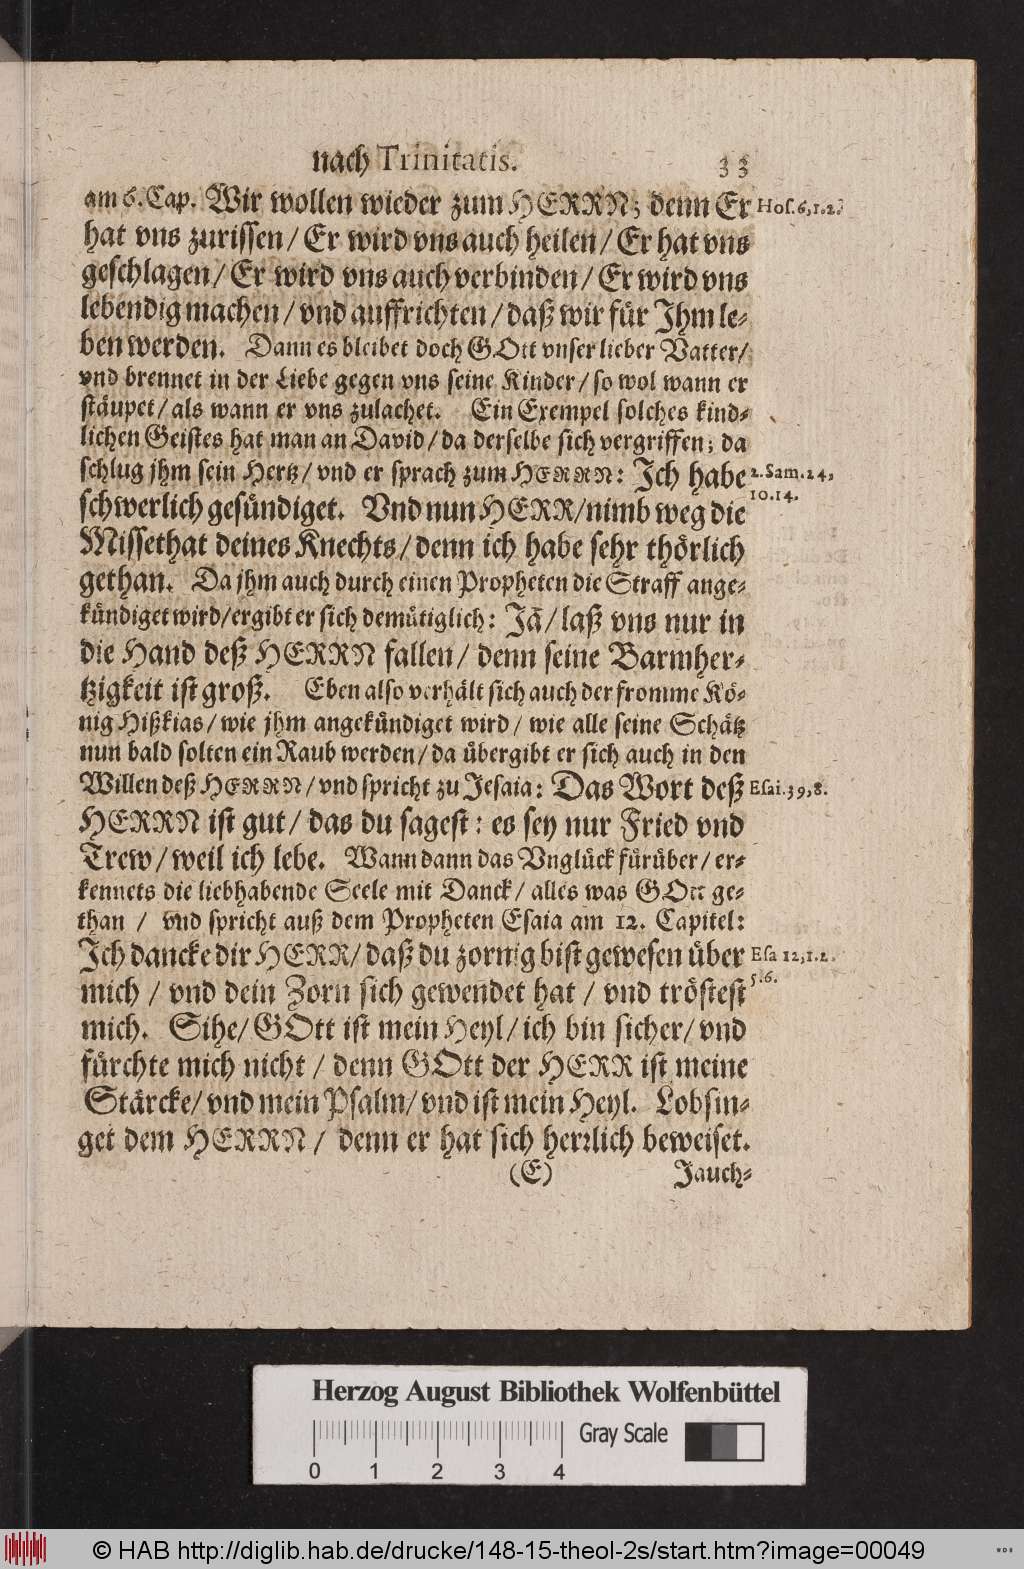 nach Trinitatis. 33
am 6. Cap. Wir wollen wieder zum HERRN; denn Er Hos. 6, 1. 2.
hat vns zurissen / Er wird vns auch heilen / Er hat vns
geschlagen / Er wird vns auch verbinden / Er wird vns
lebendig machen / vnd auffrichten / daß wir für Ihm le-
ben werden. Dann es bleibet doch GOtt vnser lieber Vatter /
vnd brennet in der Liebe gegen vns seine Kinder / so wol wann er
stäupet / als wann er vns zulachet. Ein Exempel solches kind-
lichen Geistes hat man an David / da derselbe sich vergriffen; da
schlug jhm sein Hertz / vnd er sprach zum HERRN: Ich habe 2. Sam. 24,
10. 14.
schwerlich gesündiget. Vnd nun HERR / nimb weg die
Missethat deines Knechts / denn ich habe sehr thörlich
gethan. Da jhm auch durch einen Propheten die Straff ange-
kündiget wird / ergibt er sich demütiglich: Jā / laß vns nur in
die Hand deß HERRN fallen / denn seine Barmher-
tzigkeit ist groß. Eben also verhält sich auch der fromme Kö-
nig Hißkias / wie jhm angekündiget wird / wie alle seine Schätz
nun bald solten ein Raub werden / da übergibt er sich auch in den
Willen deß HERRN / vnd spricht zu Jesaia: Das Wort deß Esai. 39, 8.
HERRN ist gut / das du sagest: es sey nur Fried vnd
Trew / weil ich lebe. Wann dann das Vnglück fürüber / er-
kennets die liebhabende Seele mit Danck / alles was GOtt ge-
than / vnd spricht auß dem Propheten Esaia am 12. Capitel:
Ich dancke dir HERR / daß du zornig bist gewesen über Esa 12, 1. 2.
5. 6.
mich / vnd dein Zorn sich gewendet hat / vnd tröstest
mich. Sihe / GOtt ist mein Heyl / ich bin sicher / vnd
fürchte mich nicht / denn GOtt der HERR ist meine
Stärcke / vnd mein Psalm / vnd ist mein Heyl. Lobsin-
get dem HERRN / denn er hat sich herrlich beweiset.
(E) Jauch-
Herzog August Bibliothek Wolfenbüttel
Gray Scale
0 1 2 3 4
© HAB http://diglib.hab.de/drucke/148-15-theol-2s/start.htm?image=00049